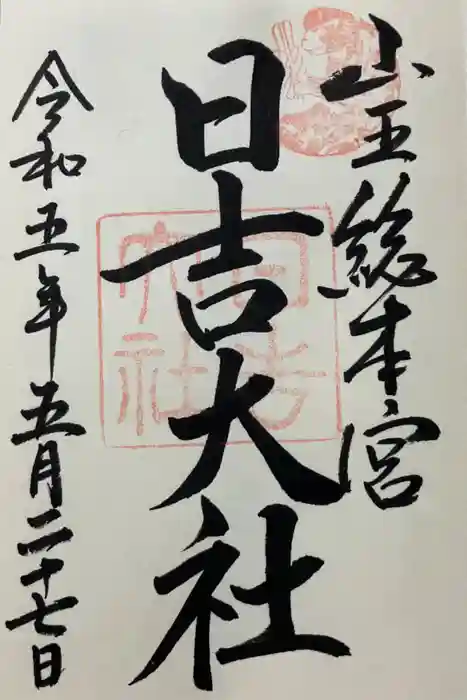 山王総本宮
日吉大社
令和五年五月二十七日
日吉大社